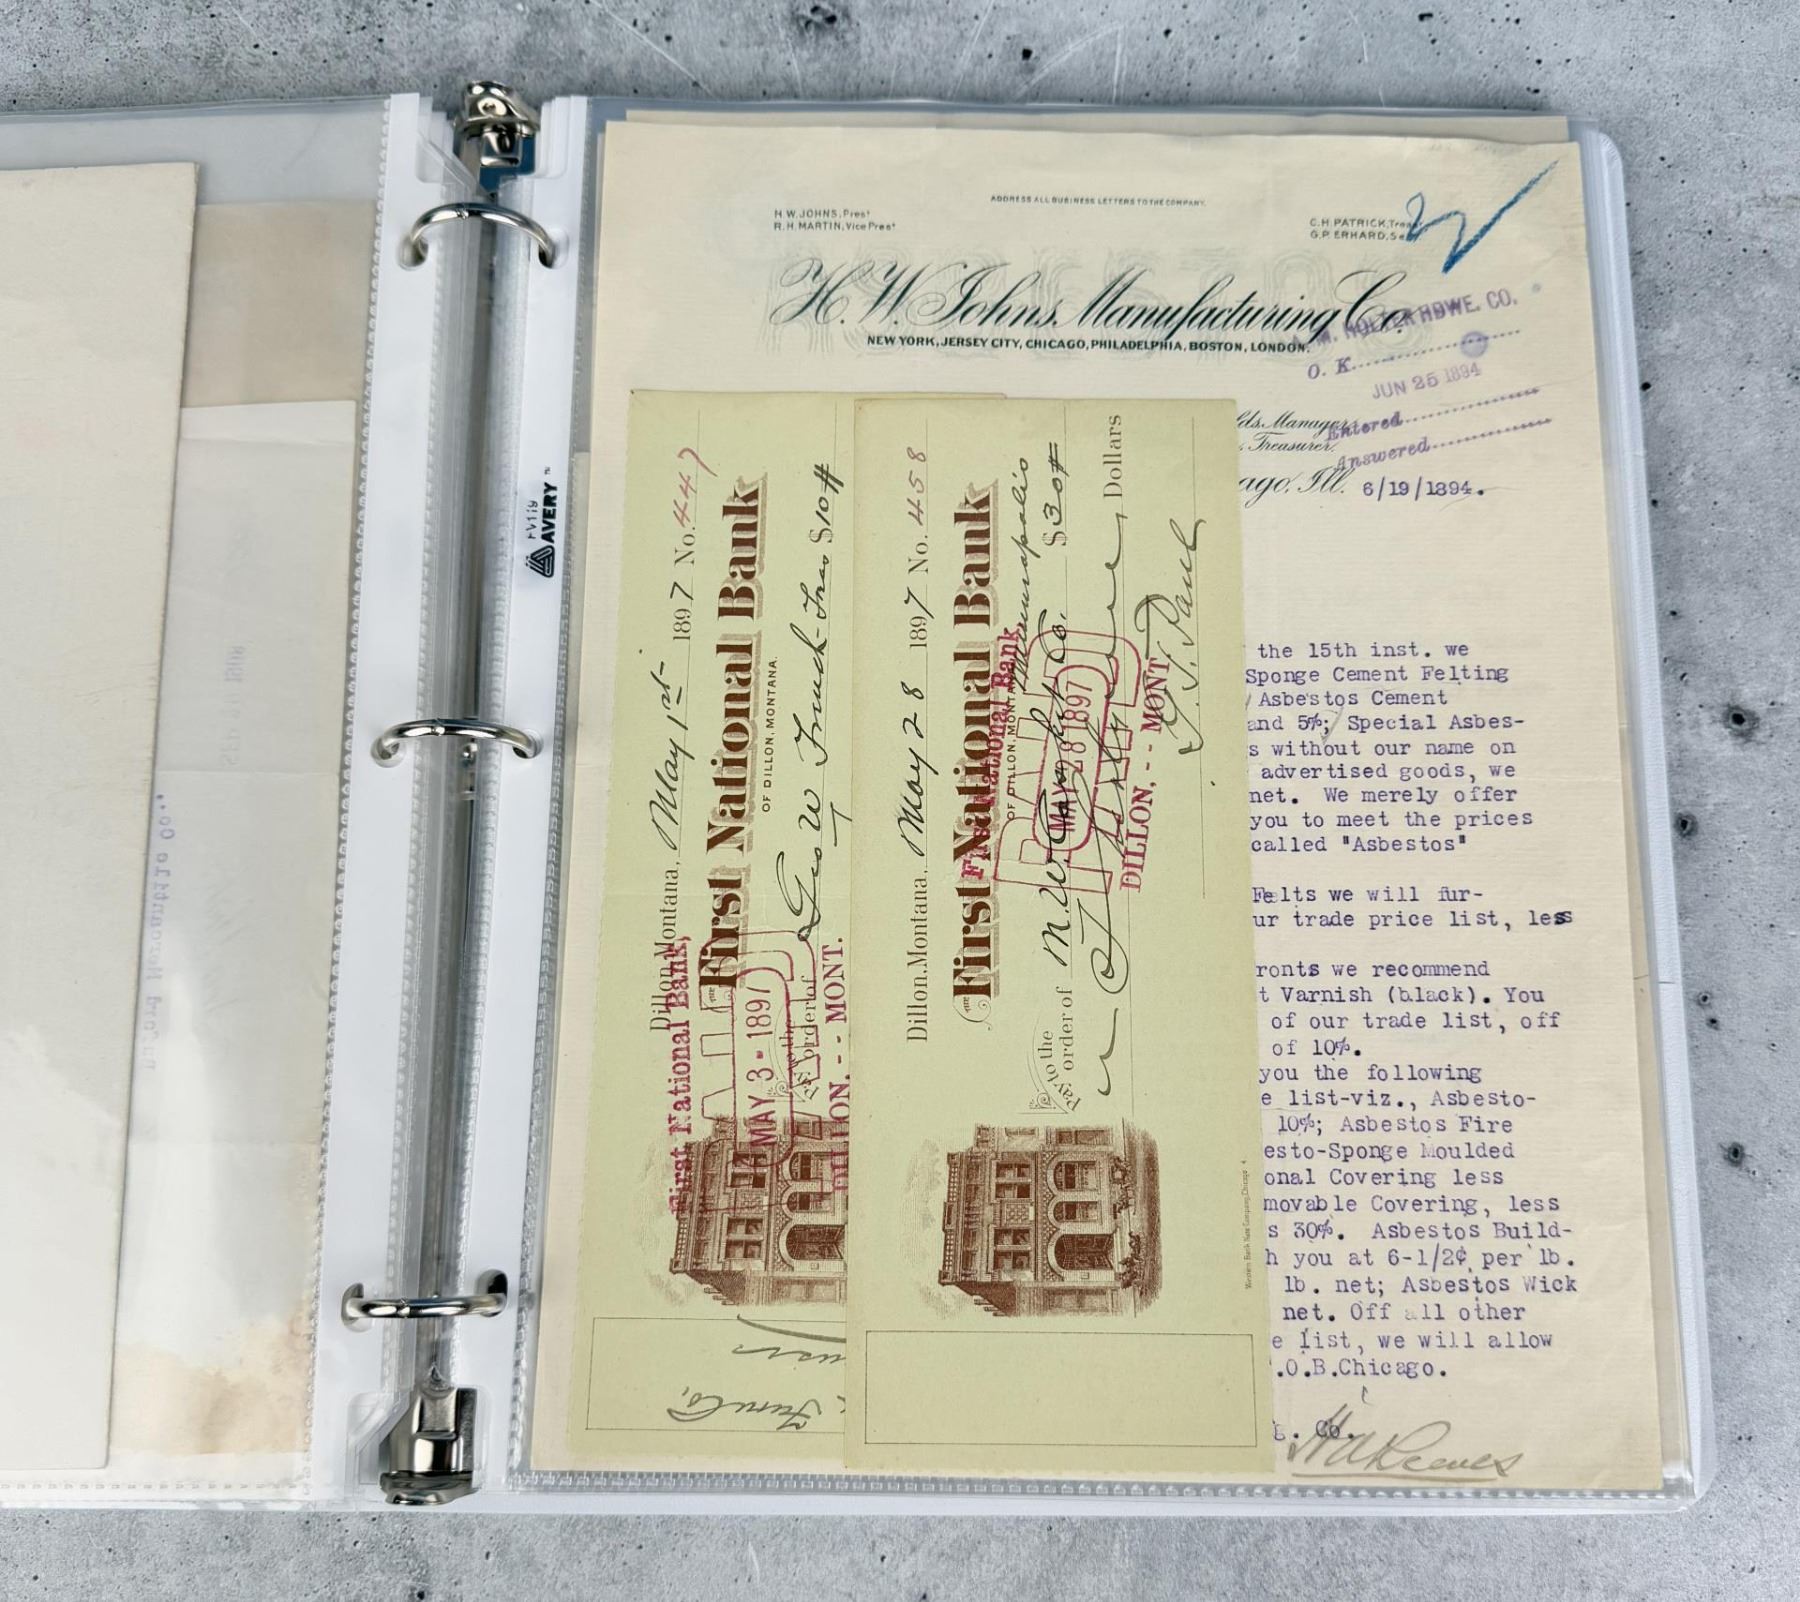 ADDRESS ALL BUSINESS LETTERS TO THE COMPANY.
H.W. JOHNS, Prest
R.H. MARTIN, Vice Prest
C.H. PATRICK, Treas
G.P. ERHARD, Se
H. W. Johns Manufacturing Co.
NEW YORK, JERSEY CITY, CHICAGO, PHILADELPHIA, BOSTON, LONDON.
M. HOLTER HDWE. CO.
O. K.
JUN 25 1894
Entered
Answered
lds. Manager.
Treasurer.
ago, Ill. 6/19/1894.
the 15th inst. we
Sponge Cement Felting
Asbestos Cement
and 5%; Special Asbes-
s without our name on
advertised goods, we
net. We merely offer
you to meet the prices
called "Asbestos"
Felts we will fur-
ur trade price list, less
ronts we recommend
t Varnish (black). You
of our trade list, off
of 10%.
you the following
e list-viz., Asbesto-
10%; Asbestos Fire
esto-Sponge Moulded
onal Covering less
movable Covering, less
s 30%. Asbestos Build-
h you at 6-1/2¢ per lb.
lb. net; Asbestos Wick
net. Off all other
e list, we will allow
.O.B.Chicago.
g. Co.
H A Reeves
Dillon, Montana, May 1st 1897 No. 447
THE First National Bank
OF DILLON, MONTANA.
Pay to the
order of Geo W Truck Treas $10#
First National Bank,
PAID
MAY 3 - 1897
DILLON, - - MONT.
Dillon, Montana, May 28 1897 No. 458
THE First National Bank
OF DILLON, MONTANA.
Minneapolis
Pay to the
order of M. W. Co. $30#
Dollars
St. Paul
First National Bank
PAID
MAY 28 1897
DILLON, - - MONT
Western Bank Note Company, Chicago
PV119
AVERY™